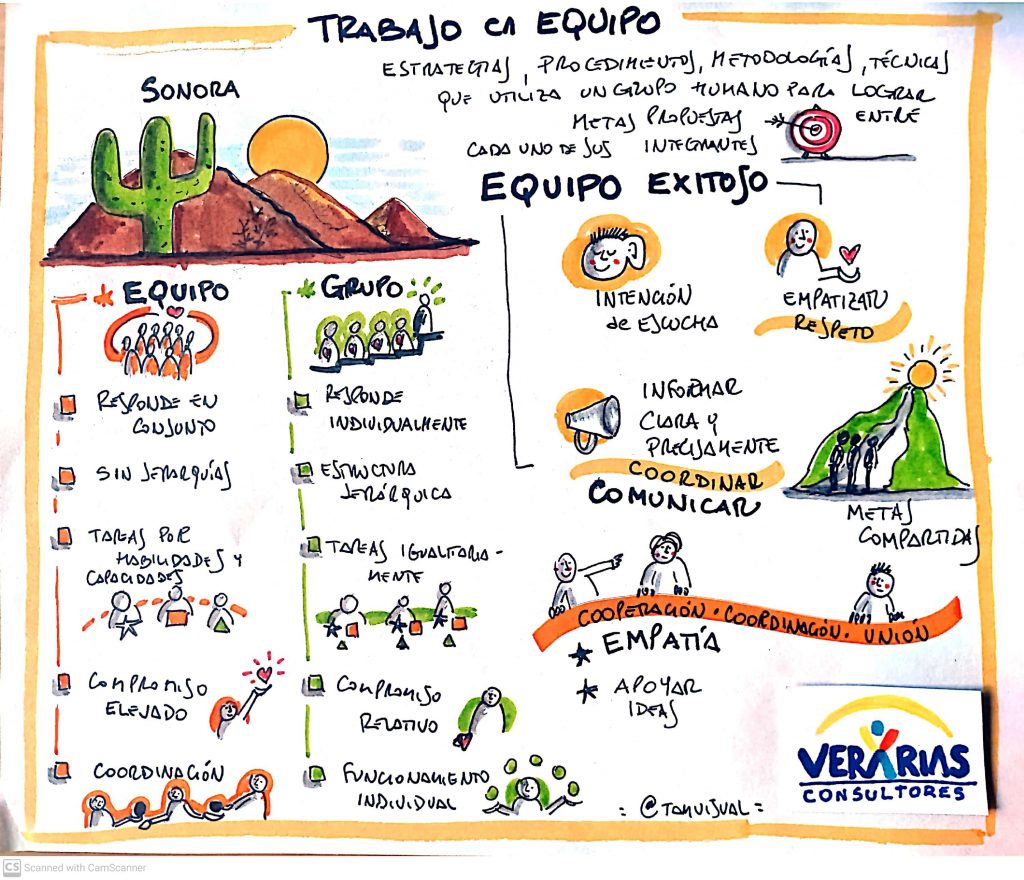 TRABAJO EN EQUIPO
ESTRATEGIAS, PROCEDIMIENTOS, METODOLOGÍAS, TÉCNICAS
QUE UTILIZA UN GRUPO HUMANO PARA LOGRAR
METAS PROPUESTAS ENTRE
CADA UNO DE SUS INTEGRANTES
SONORA
EQUIPO EXITOSO
INTENCIÓN
de ESCUCHA
EMPATIZAR
RESPETO
INFORMAR
CLARA Y
PRECISAMENTE
COORDINAR
COMUNICAR
METAS
COMPARTIDAS
* EQUIPO
RESPONDE EN
CONJUNTO
SIN JERARQUÍAS
TAREAS POR
HABILIDADES Y
CAPACIDADES
COMPROMISO
ELEVADO
COORDINACIÓN
* GRUPO
RESPONDE
INDIVIDUALMENTE
ESTRUCTURA
JERÁRQUICA
TAREAS IGUALITARIA-
MENTE
COMPROMISO
RELATIVO
FUNCIONAMIENTO
INDIVIDUAL
COOPERACIÓN · COORDINACIÓN · UNIÓN
★ EMPATÍA
★ APOYAR
IDEAS
= @TAHVISUAL =
VERARIAS
CONSULTORES
CS Scanned with CamScanner